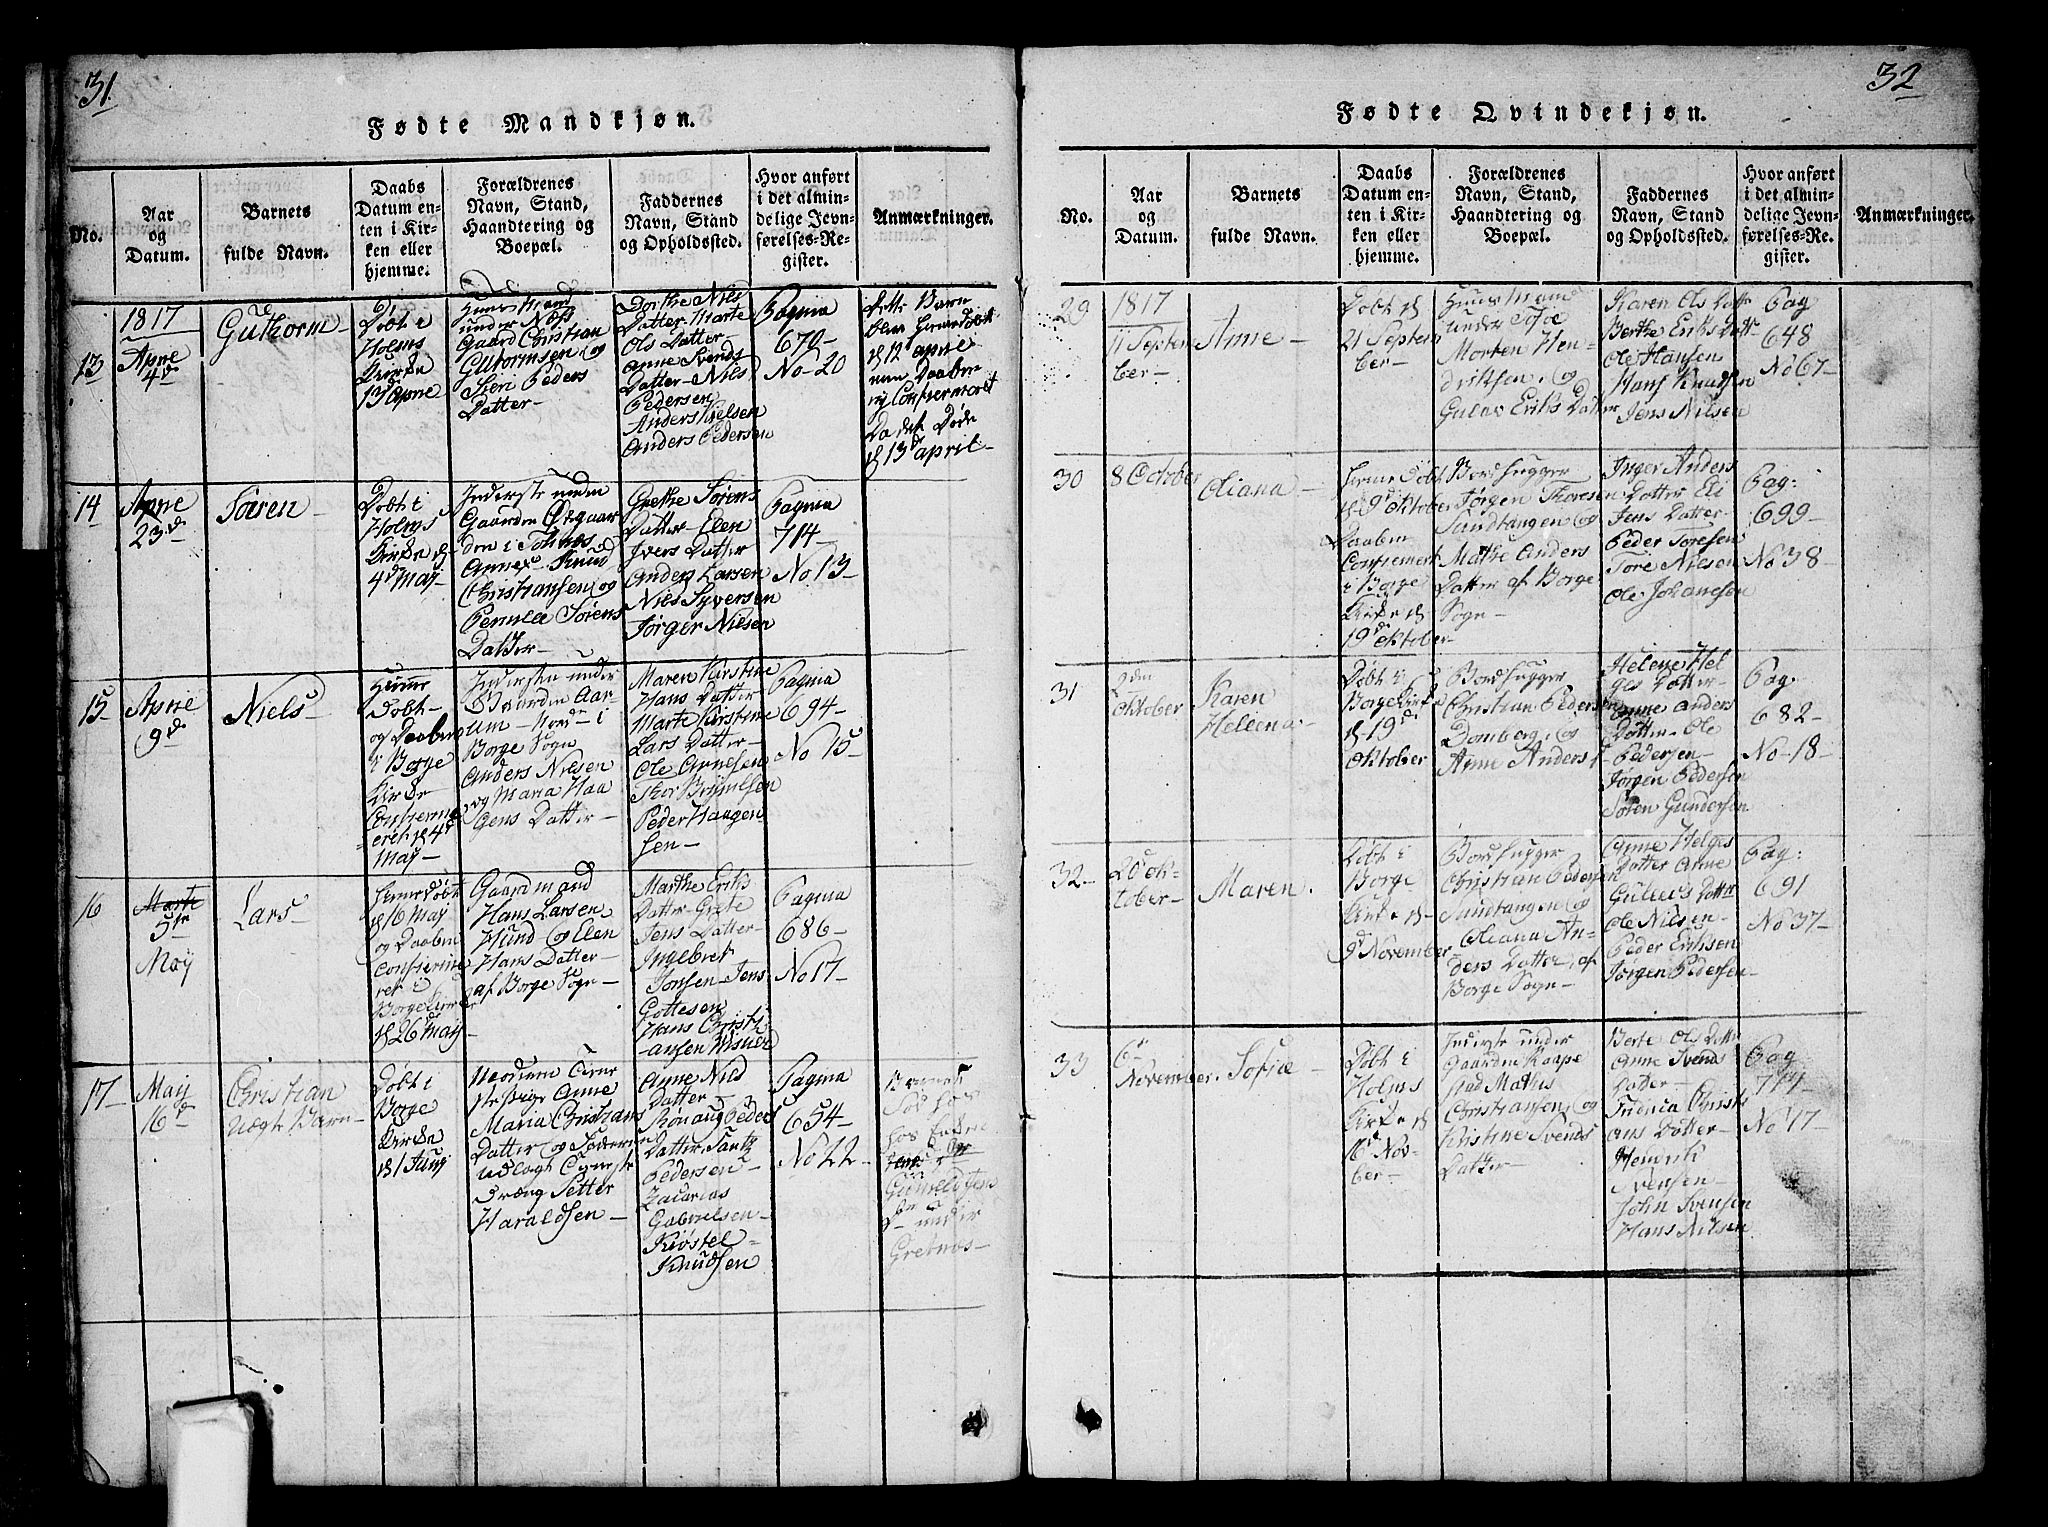 31.
Fødte Mandkjøn.
No.
Aar
og
Datum.
Barnets
fulde Navn.
Daabs
Datum en-
ten i Kir-
ken eller
hjemme.
Forældrenes
Navn, Stand,
Haandtering og
Boepæl.
Faddernes
Navn, Stand
og Opholdssted.
Hvor anført
i det almin-
delige Jevn-
førelses-Re-
gister.
Anmærkninger.
13
1817
4d
Guthorm
Døbt i
Holms
Kirke
Huus Mand
under Næss
Gaard Christian
Gutormsen og
Siri Peders
Datter
Dorthe Niels
Datter Marte
Ols Datter
Anne Svends
Datter Niels
Pedersen
Anders Nielsen
Anders Pedersen
Pagina
670
No 20
Dette Barn
blev hiemedøbt
d 12 april
Da det Døde
d 13d april
14
23d
Søren
Døbt i
Holms
Kirke d
4d May
Inderste under
Gaarden Østgaar
den i
Annex Knud
Christiansen og
Pernille Sørens
Datter
Grethe Sørens
Datter Elen
Ivers Datter
Anders Larsen
Niels Syversen
Jørger Nielsen
Pagina
714
No 13
15
9d
Niels
Hiemme
Døbt
og Daaben
i Borge
Kirke
Confirme
eret d 4d
May
Inderste under
Gaarden Aar
um Nord i
Borge Sogn
Anders Nielsen
og Maria Haa
gens Datter
Maren Kirstine
Hans Datter
Marte Kirstine
Lars Datter
Ole Arnesen
Thor Brynelsen
Peder Haagen
sen
Pagina
694
No 15
16
5te
May
Lars
hiemedøbt
d 6 May
og Daaben
confierme
ret i
Borge Kirke
d 26 May
Gaardmand
Hans Larsen
Hund og Elen
Hans Datter
af Borge Sogn
Marthe Eriks
Datter Grete
Jens Datter
Ingebret
Jonsen Jens
Gottesen
Hans Christi
ansen
Pagina
686
No 17
17
May
16d
Christian
Uægte Barn
Døbt i
Borge
Kirke
d 1 Juny
Anne
Maria Christians
Datter og
udlagt
Dræng Petter
Haraldsen
Anne Niels
Datter
Rønaug Peders
Datter
Pedersen
Zacarias
Gabrielsen
Kiøstel
Knudsen
Pagina
654
No 22
under
32
Fødte Qvindekjøn.
No.
Aar
og
Datum.
Barnets
fulde Navn.
Daabs
Datum en-
ten i Kir-
ken eller
hjemme.
Forældrenes
Navn, Stand,
Haandtering og
Boepæl.
Faddernes
Navn, Stand
og Opholdssted.
Hvor anført
i det almin-
delige Jevn-
førelses-Re-
gister.
Anmærkninger.
29
1817
11 Septem
ber
Anne
Døbt d
21 Septem
ber
Huus Man
under
Morten Hen
driksen, og
Gulav Eriks Datter
Karen Ols Datter
Berthe Eriks Datt
Ole Hansen
Hans Knudsen
Jens Nilsen
Pag
648
No 67
30
8 October
Oliana
hieme Døbt
d 9d Oktober
Daaben
Confiermert
i Borge
Kirke d
19d oktober
Bordhugger
Jørgen Thoresen
Sandtangen og
Mathe Anders
Datter af Borge
Sogn
Inger Anders
Datter Eli
Jens Datter
Peder Toresen
Tore Nielsen
Ole Johanesen
Pag:
699
No 38
31
2den
Oktober
Karen
Helena
Døbt i
Borge Kirke
d 19d
Oktober
Bordhugger
Christian Pedersen
Domberg, og
Anne Anders D
Helene Hel
ges Datter
Anne Anders
Datter Ole
Pedersen
Jørgen Pedersen
Søren Gundersen
Pag.
682
No 18
32
20 ok
tober
Maren
Døbt i
Borge
Kirke d
9d November
Bordhugger
Christian Pedersen
Sandtangen og
Oliana An
ders Datter, af
Borge Sogn
Anne Helges
Datter Anne
Guliets Datter
Ole Nilsen
Peder Eriksen
Jørgen Pedersen
Pag:
691
No 37
33
6d
November
Sofie
Døbt i
Holms
Kirke d
16d Nov
ber
Inderste under
Gaarden Kaape
stad Mathis
Christiansen, og
Kristine Svends
Datter
Berte Ols Datt
Anne Svends
Datter
Fridrica Christi
ans Datter
Hendrik
Svensen
John Svensen
Hans Nilsen
Pag
714
No 17